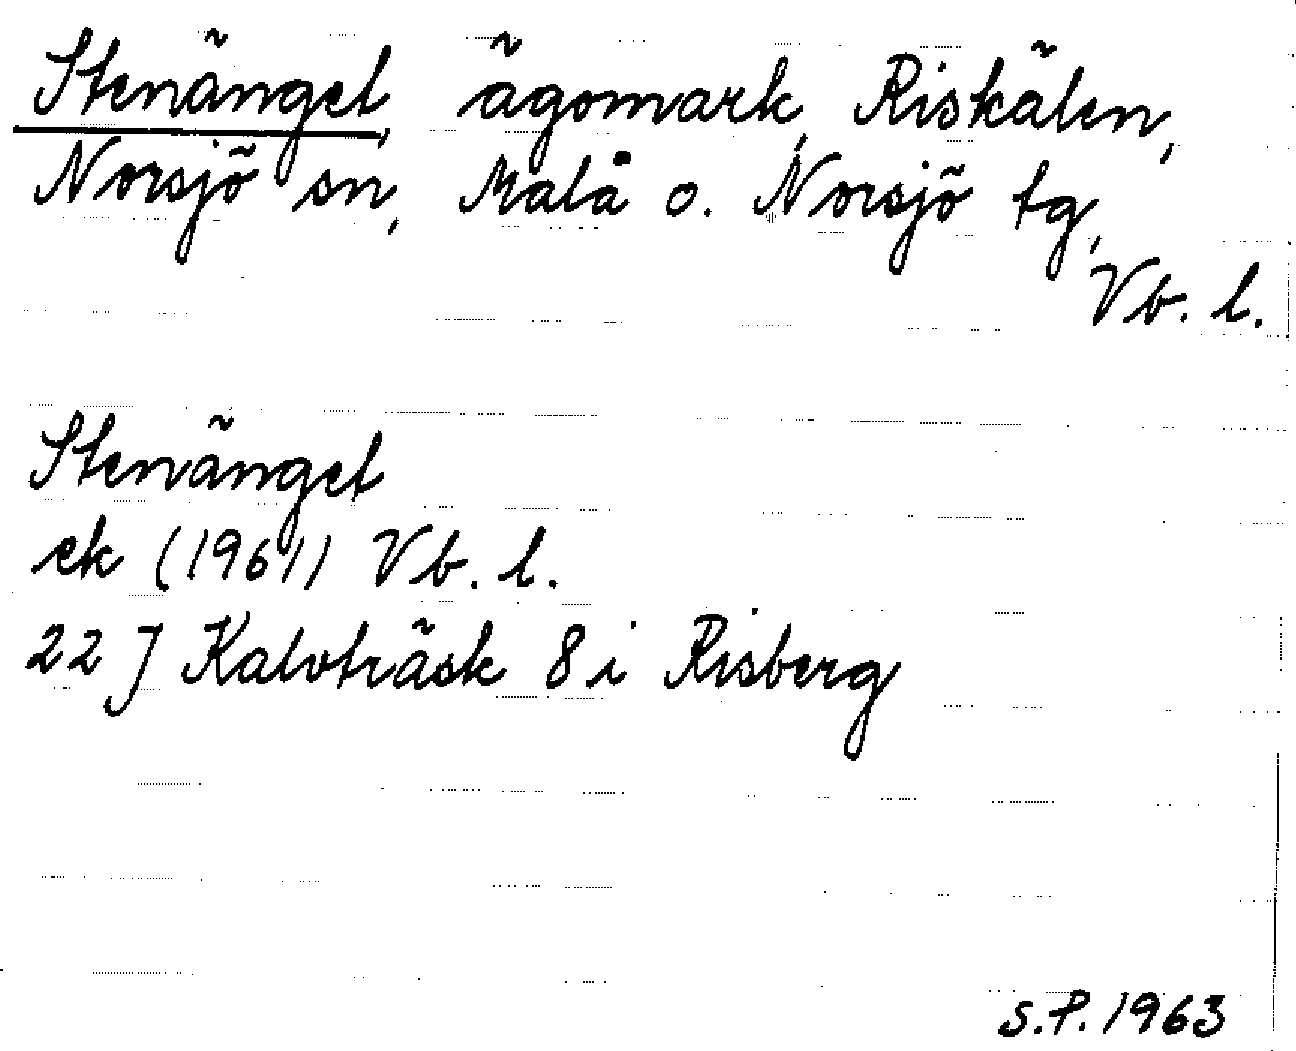 Stenänget, ägomark, Riskälen,
Norsjö sn, Malå o. Norsjö tg,
Vb. l.
Stenänget
ek (1961) Vb. l.
22 J Kalvträsk 8 i Risberg
S.P. 1963